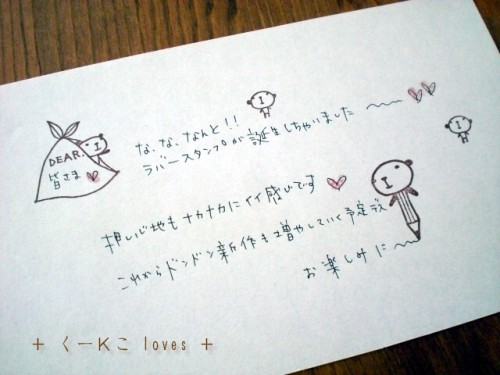 DEAR.
皆さま
な、な、なんと!!
ラバースタンプが誕生しちゃいました 〜
押し心地もナカナカにイイ感じです
これからドンドン新作も増やしていく予定デス
お楽しみに〜
+ くーKこ loves +